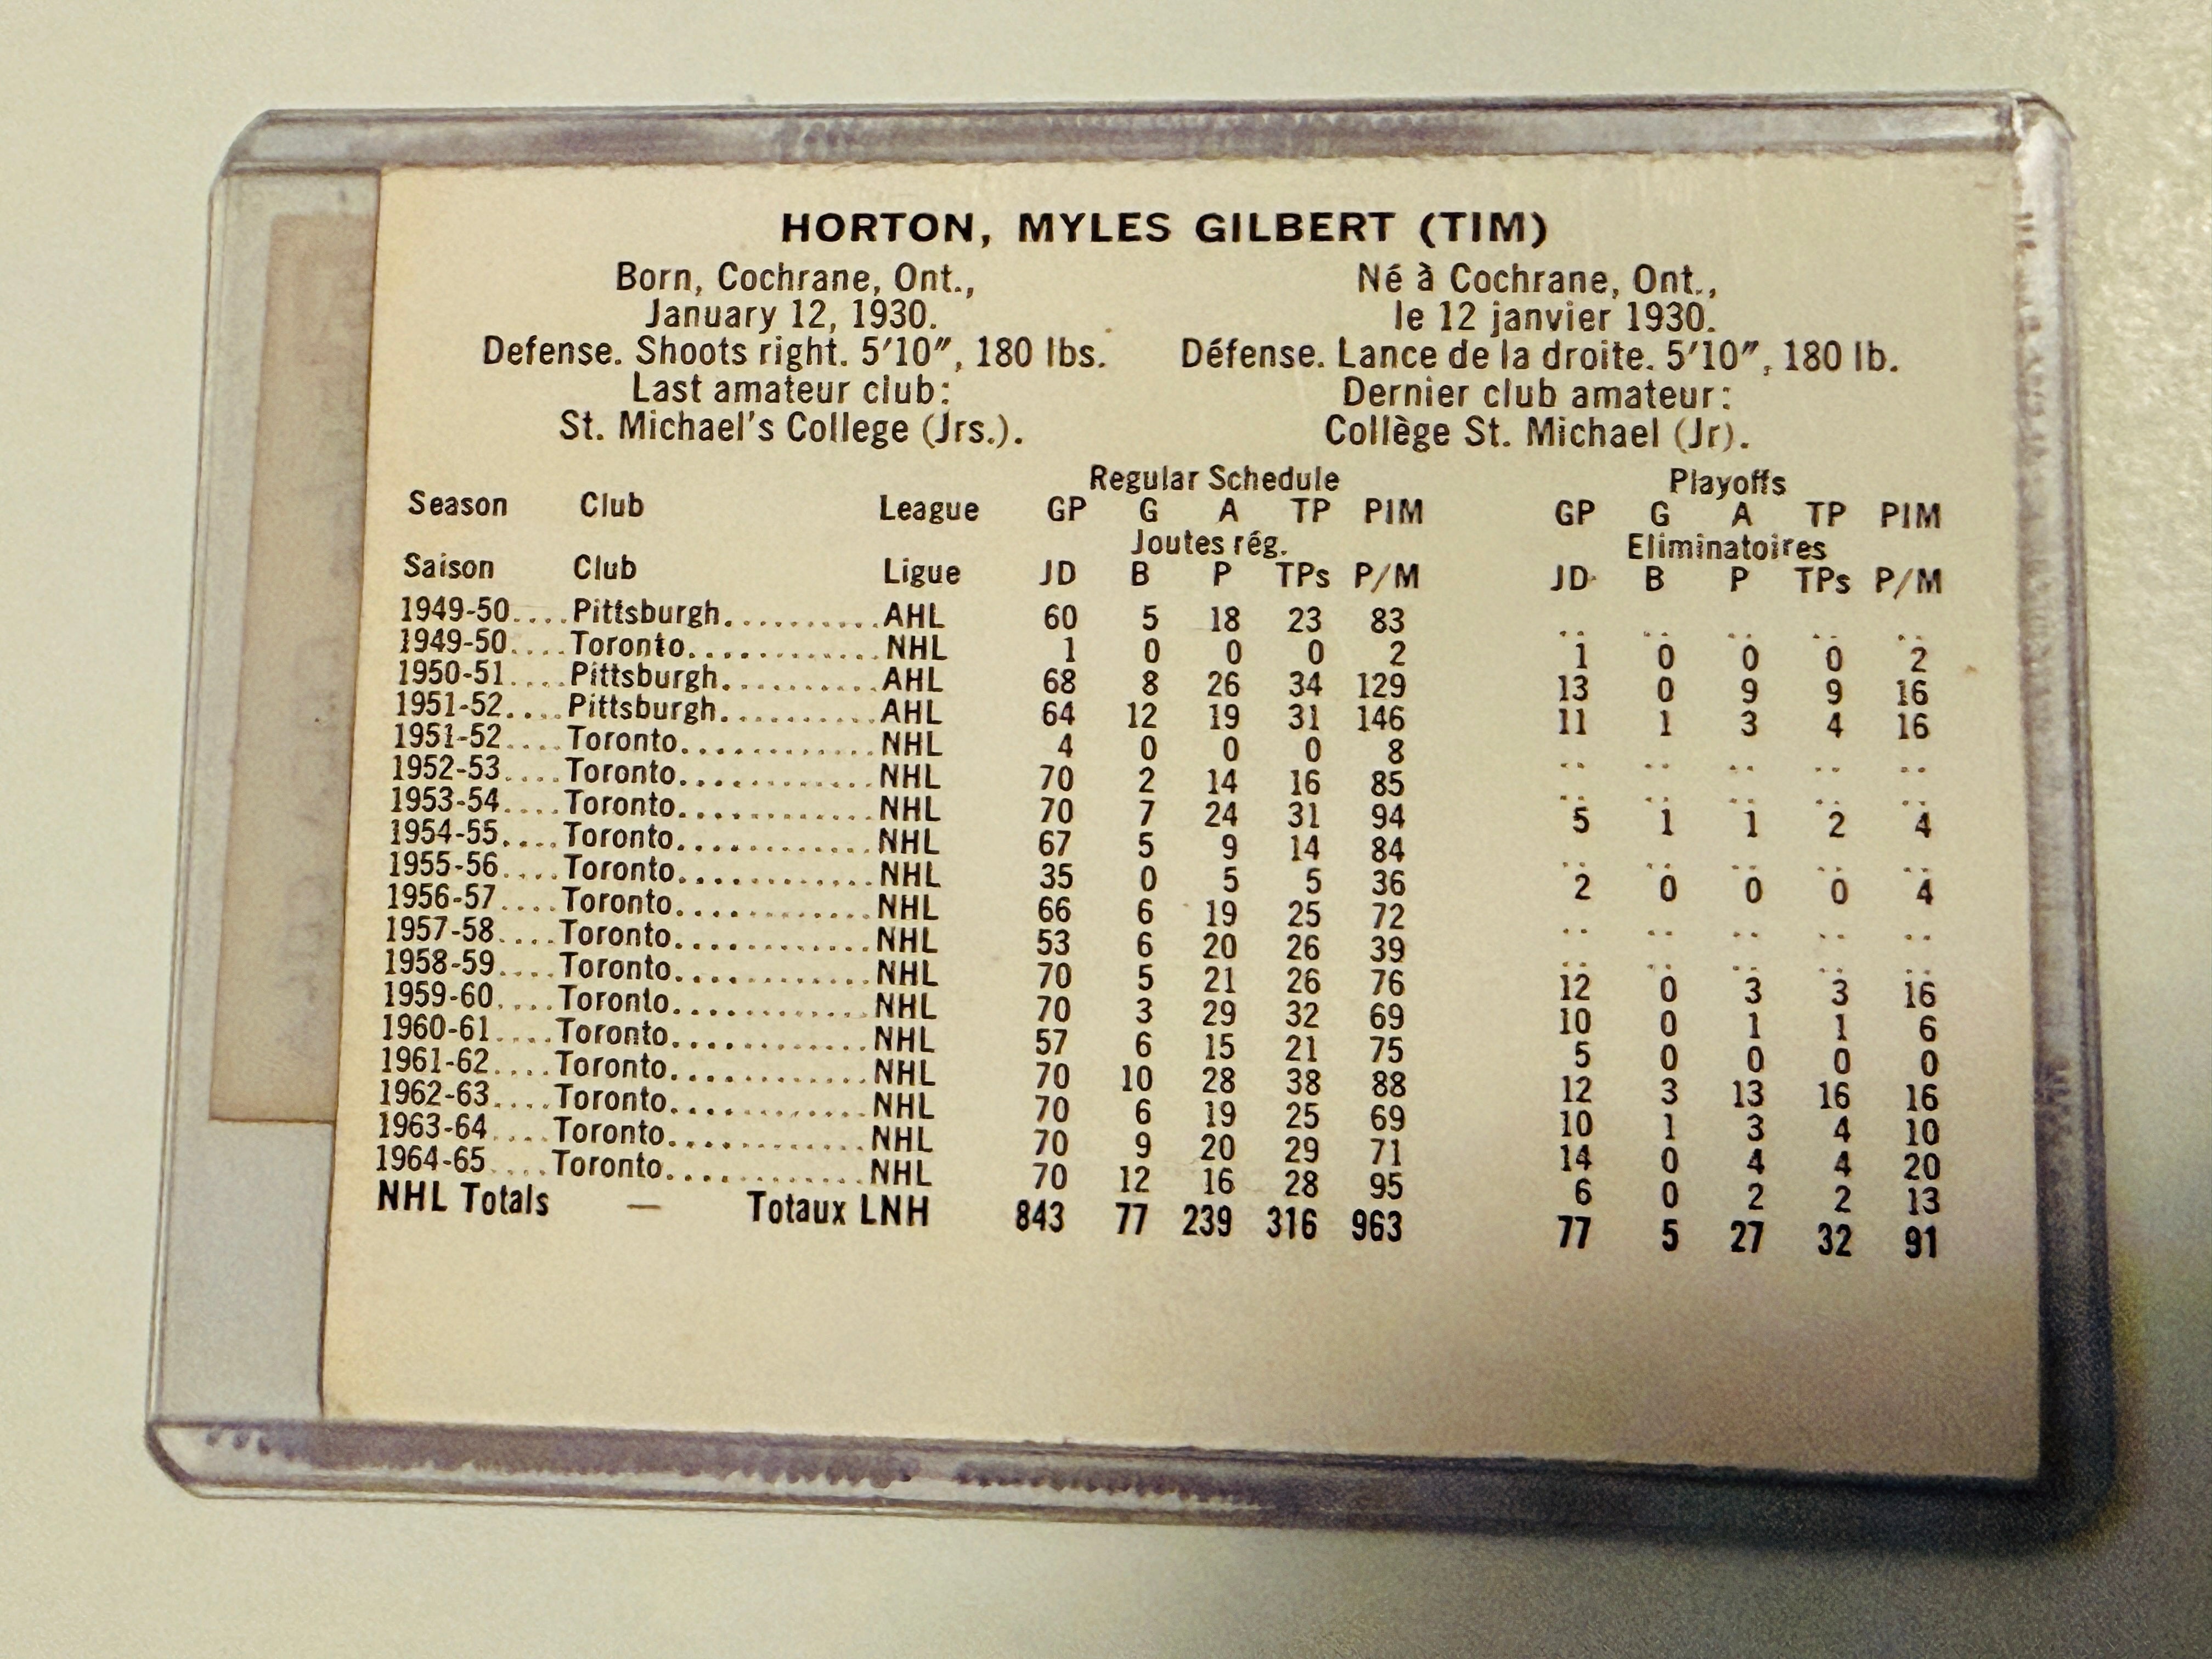 HORTON, MYLES GILBERT (TIM)
Born, Cochrane, Ont.,
January 12, 1930.
Defense. Shoots right. 5'10", 180 lbs.
Last amateur club:
St. Michael's College (Jrs.).
Né à Cochrane, Ont.,
le 12 janvier 1930.
Défense. Lance de la droite. 5'10", 180 lb.
Dernier club amateur:
Collège St. Michael (Jr).
Regular Schedule Playoffs
Season Club League GP G A TP PIM GP G A TP PIM
Joutes rég. Eliminatoires
Saison Club Ligue JD B P TPs P/M JD B P TPs P/M
1949-50....Pittsburgh...........AHL 60 5 18 23 83 .. .. .. .. ..
1949-50....Toronto.............NHL 1 0 0 0 2 1 0 0 0 2
1950-51....Pittsburgh...........AHL 68 8 26 34 129 13 0 9 9 16
1951-52....Pittsburgh...........AHL 64 12 19 31 146 11 1 3 4 16
1951-52....Toronto.............NHL 4 0 0 0 8 .. .. .. .. ..
1952-53....Toronto.............NHL 70 2 14 16 85 .. .. .. .. ..
1953-54....Toronto.............NHL 70 7 24 31 94 5 1 1 2 4
1954-55....Toronto.............NHL 67 5 9 14 84 .. .. .. .. ..
1955-56....Toronto.............NHL 35 0 5 5 36 2 0 0 0 4
1956-57....Toronto.............NHL 66 6 19 25 72 .. .. .. .. ..
1957-58....Toronto.............NHL 53 6 20 26 39 .. .. .. .. ..
1958-59....Toronto.............NHL 70 5 21 26 76 12 0 3 3 16
1959-60....Toronto.............NHL 70 3 29 32 69 10 0 1 1 6
1960-61....Toronto.............NHL 57 6 15 21 75 5 0 0 0 0
1961-62....Toronto.............NHL 70 10 28 38 88 12 3 13 16 16
1962-63....Toronto.............NHL 70 6 19 25 69 10 1 3 4 10
1963-64....Toronto.............NHL 70 9 20 29 71 14 0 4 4 20
1964-65....Toronto.............NHL 70 12 16 28 95 6 0 2 2 13
NHL Totals — Totaux LNH 843 77 239 316 963 77 5 27 32 91